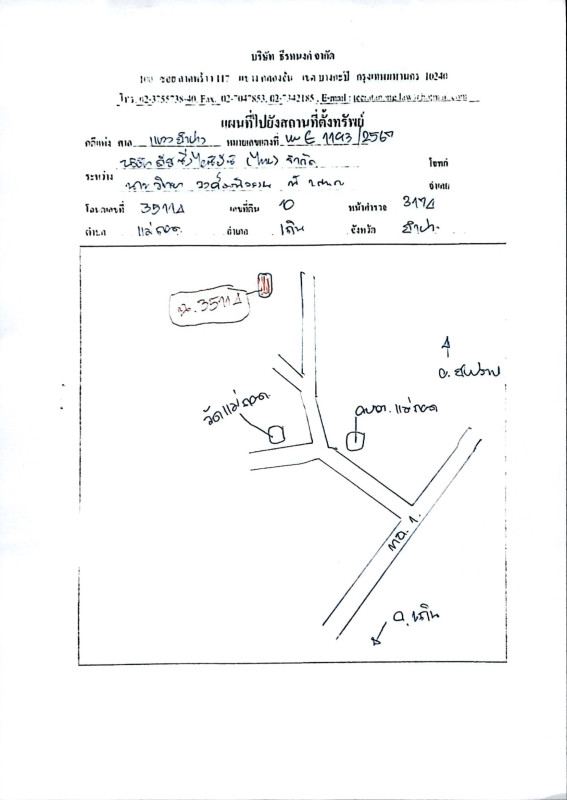 บริษัท ธีรทนงก์ จำกัด
100 ซอยลาดพร้าว 117 แขวงคลองจั่น เขตบางกะปิ กรุงเทพมหานคร 10240
โทร. 02-3755738-40, Fax. 02-7047853, 02-7342185, E-mail :
แผนที่ไปยังสถานที่ตั้งทรัพย์
คดีแพ่ง ศาล แขวงลำปาง หมายเลขแดงที่ ผบE 1193/2560
ระหว่าง บริษัท อีซี่ บาย (ไทย) จำกัด โจทก์
นาย วิทยา จำเลย
โฉนดเลขที่ 35114 เลขที่ดิน 10 หน้าสำรวจ 3174
ตำบล แม่ถอด อำเภอ เถิน จังหวัด ลำปาง
ฉ.35114
อ.สบปราบ
วัดแม่ถอด
อบต.แม่ถอด
ทล.1
อ.เถิน